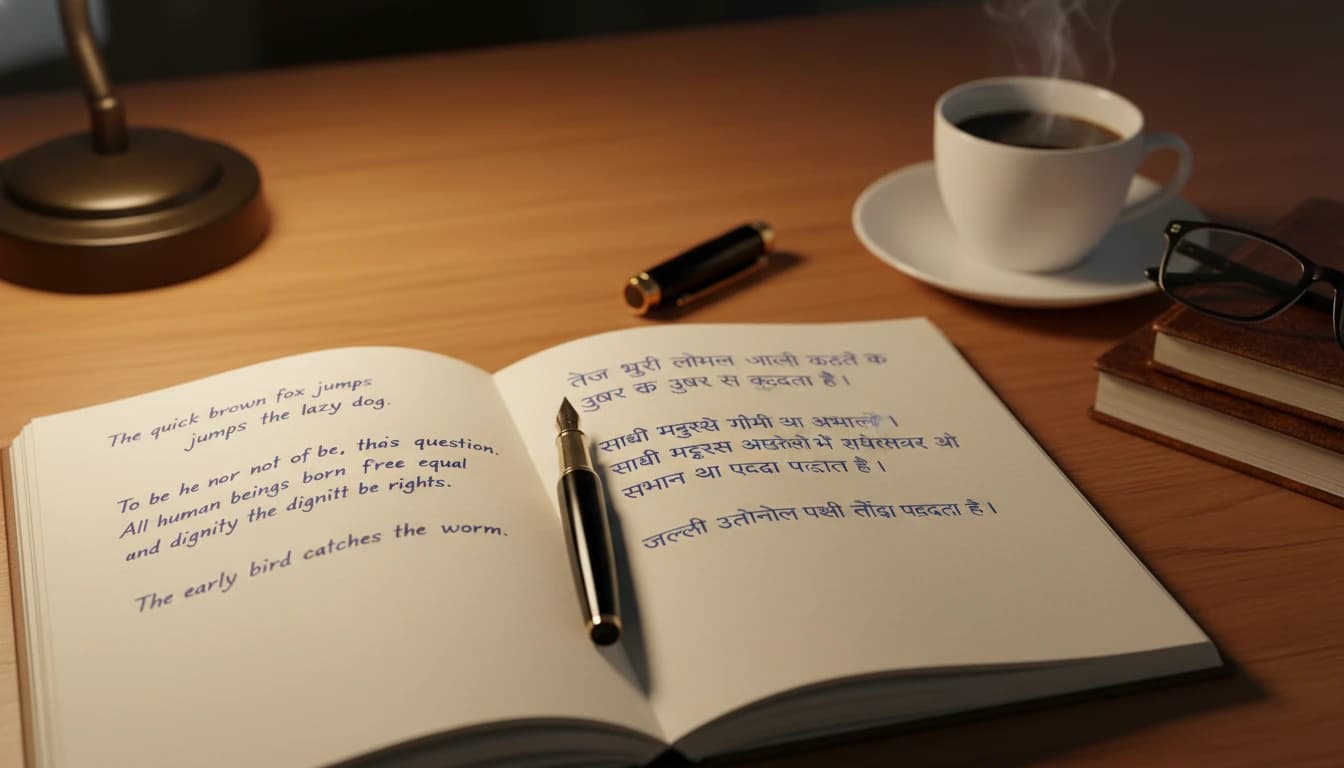 The quick brown fox jumps
jumps the lazy dog.
To be he nor not of be, thais question.
All human beings born free equal
and dignity the dignitt be rights.
The early bird catches the worm.
तेज भुरी लोमल आली कहते क
उबर क उुबर स कूदता है।
साधी मनुस्थे गीमी आ
साधी मद्वरस
सभान था पददा पदात है।
जल्ली उतोनोल पश्ची तोंदा पहदता है।